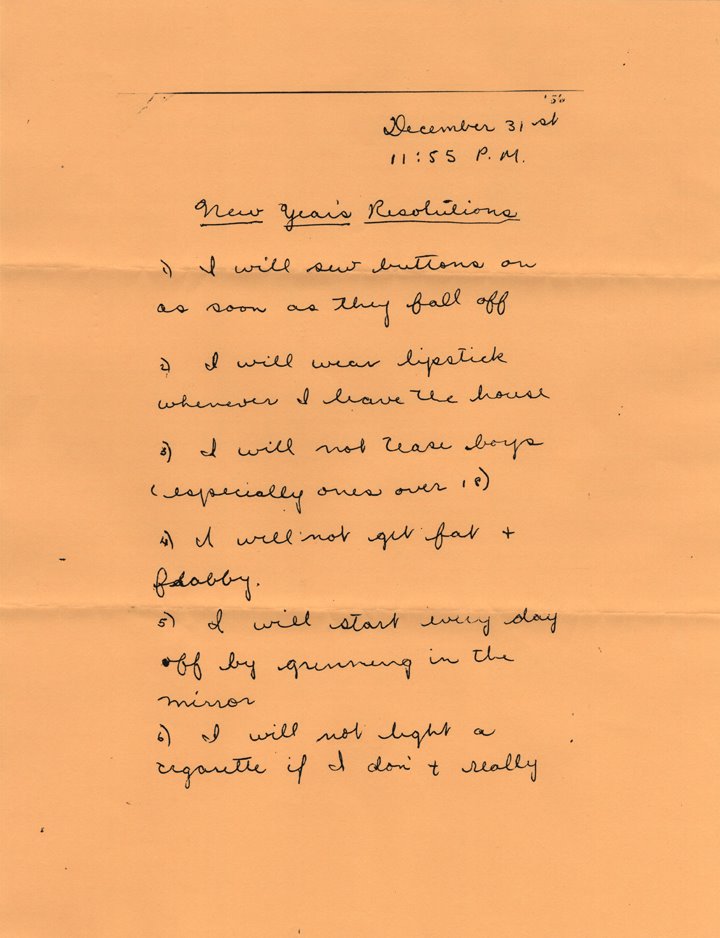 '56
December 31 st
11:55 P.M.
New Year's Resolutions
1) I will sew buttons on
as soon as they fall off
2) I will wear lipstick
whenever I leave the house
3) I will not tease boys
(especially ones over 18)
4) I will not get fat +
flabby.
5) I will start every day
off by grinning in the
mirror
6) I will not light a
cigarette if I don't really